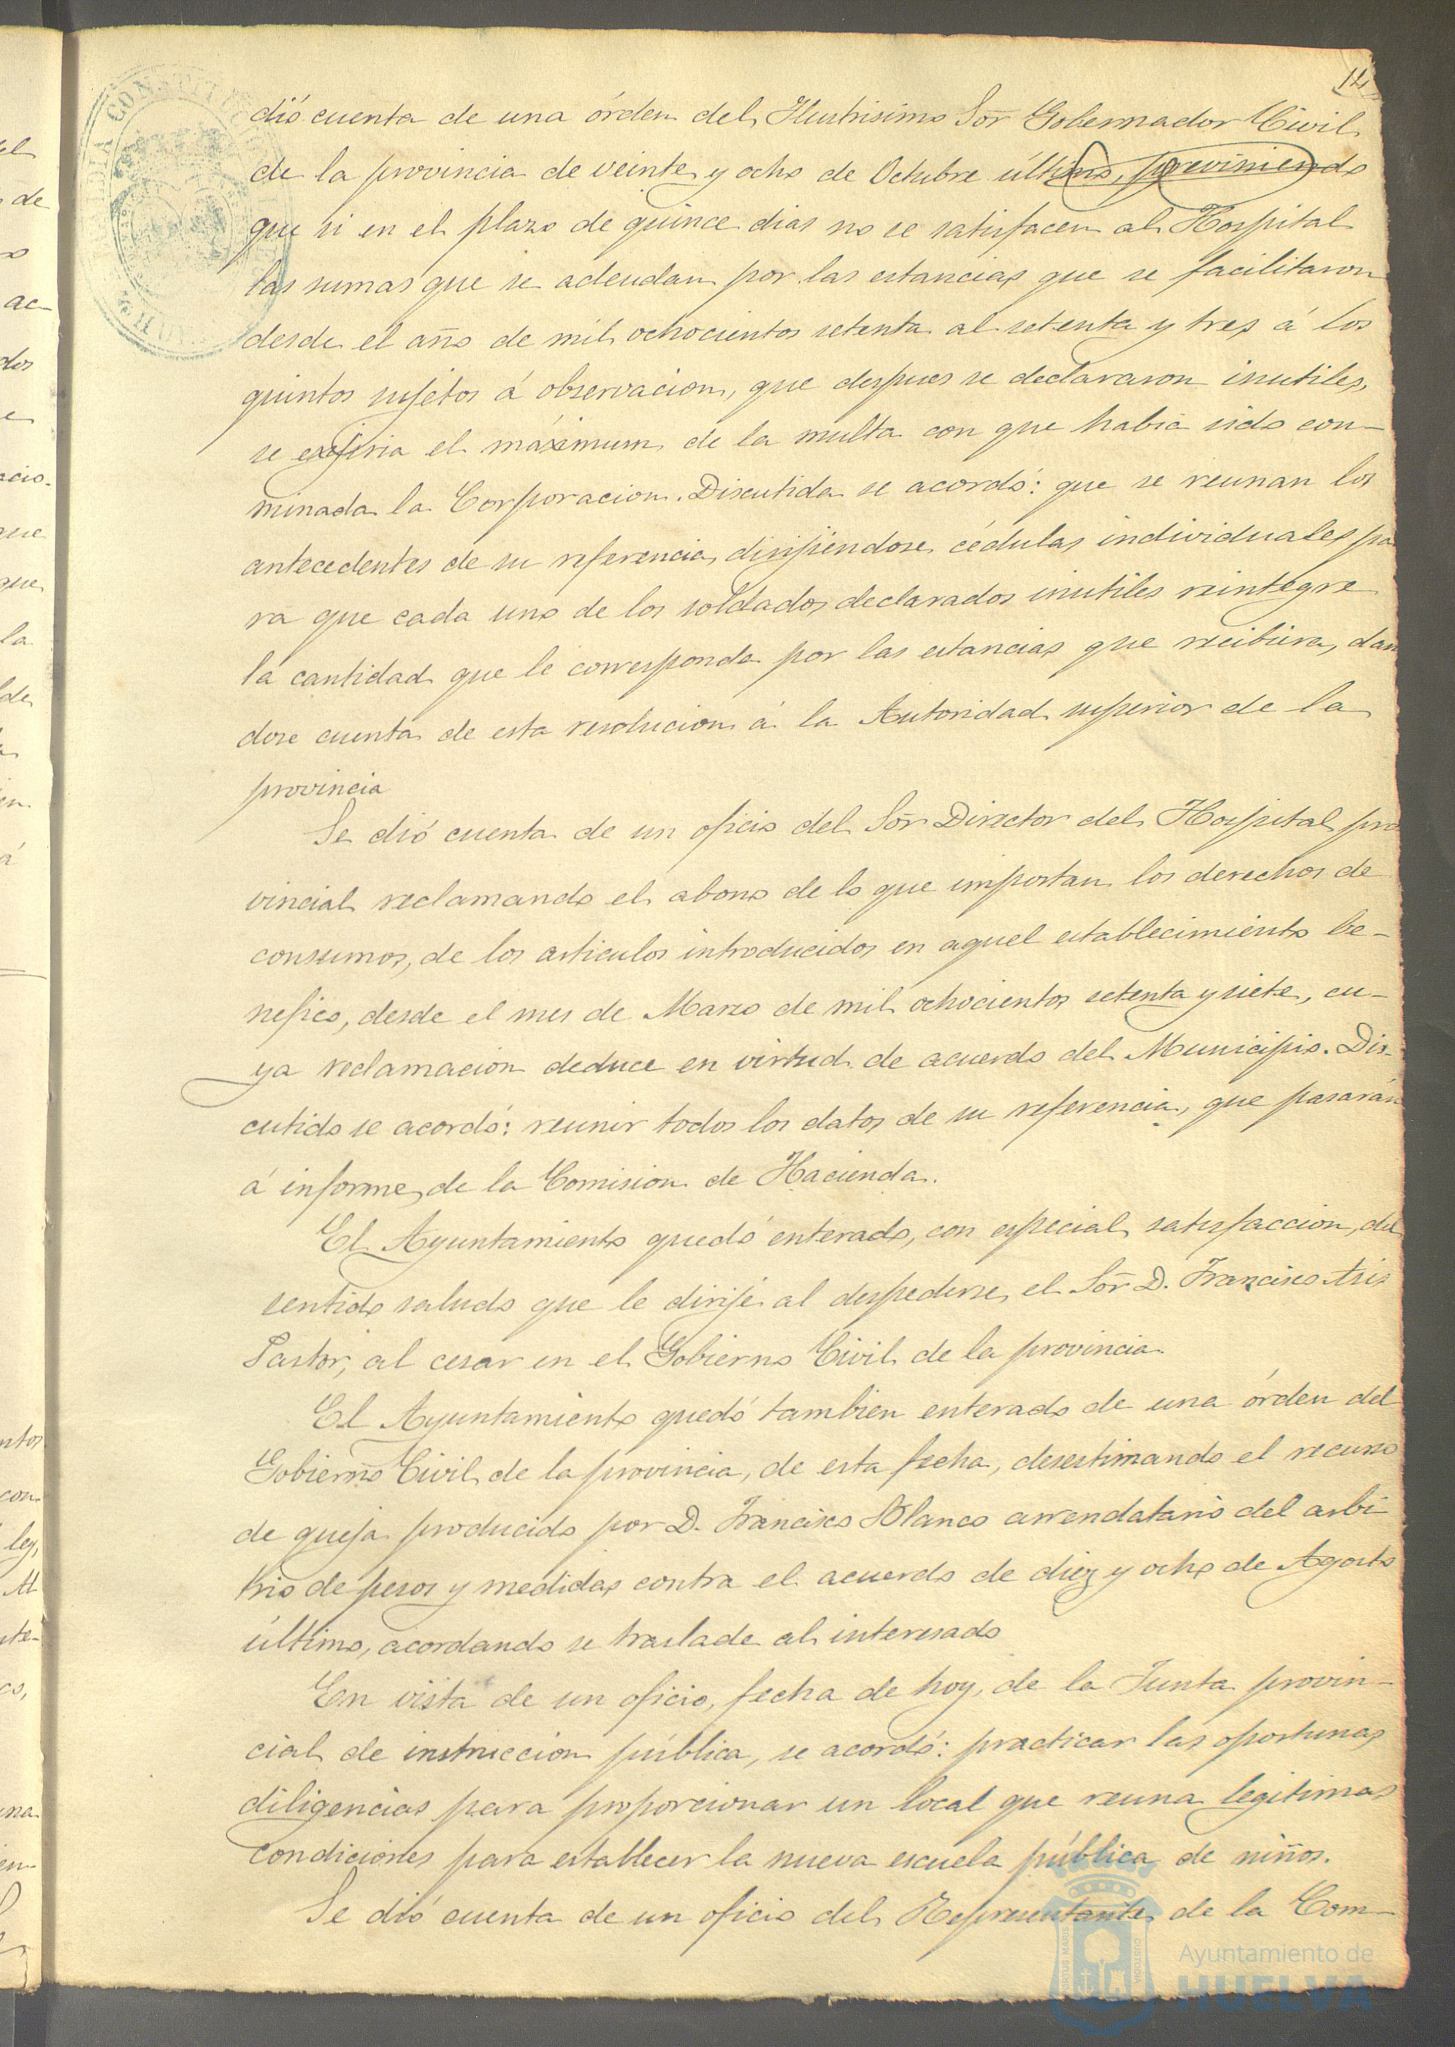 14
dió cuenta de una órden del Ilustrisimo Sor̃ Gobernador Civil
de la provincia de veinte y ocho de Octubre último, previniendo
que si en el plazo de quince dias no se satisfacen al Hospital
las sumas que se adeudan por las estancias que se facilitaron
desde el año de mil ochocientos setenta al setenta y tres á los
quintos sujetos á observacion, que despues se declararon inutiles,
se exijiria el máximum de la multa con que habia sido con-
minada la Corporacion. Discutida se acordó: que se reunan los
antecedentes de su referencia, dirijiéndose cédulas individuales pa
ra que cada uno de los soldados declarados inutiles reintegre
la cantidad que le corresponda por las estancias que recibiera, dan
dose cuenta de esta resolucion á la Autoridad superior de la
provincia
Se dió cuenta de un oficio del Sor̃ Director del Hospital pro
vincial reclamando el abono de lo que importan los derechos de
consumos, de los articulos introducidos en aquel establecimiento be-
nefico, desde el mes de Marzo de mil ochocientos setenta y siete, cu-
ya reclamacion deduce en virtud de acuerdo del Municipio. Dis-
cutido se acordó: reunir todos los datos de su referencia, que pasarán
á informe de la Comision de Hacienda.
El Ayuntamiento quedó enterado, con especial satisfaccion, del
sentido saludo que le dirije al despedirse, el Sor̃ D. Francisco Asis
Pastor, al cesar en el Gobierno Civil de la provincia.
El Ayuntamiento quedó tambien enterado de una órden del
Gobierno Civil de la provincia, de esta fecha, desestimando el recurso
de queja producido por D. Francisco Blanco arrendatario del arbi
trio de pesos y medidas contra el acuerdo de diez y ocho de Agosto
último, acordando se traslade al interesado
En vista de un oficio, fecha de hoy, de la Junta provin-
cial de instruccion pública, se acordó: practicar las oportunas
diligencias para proporcionar un local que reuna legitimas
condiciones para establecer la nueva escuela pública de niños.
Se dió cuenta de un oficio del Representante de la Com-
Ayuntamiento de
HUELVA